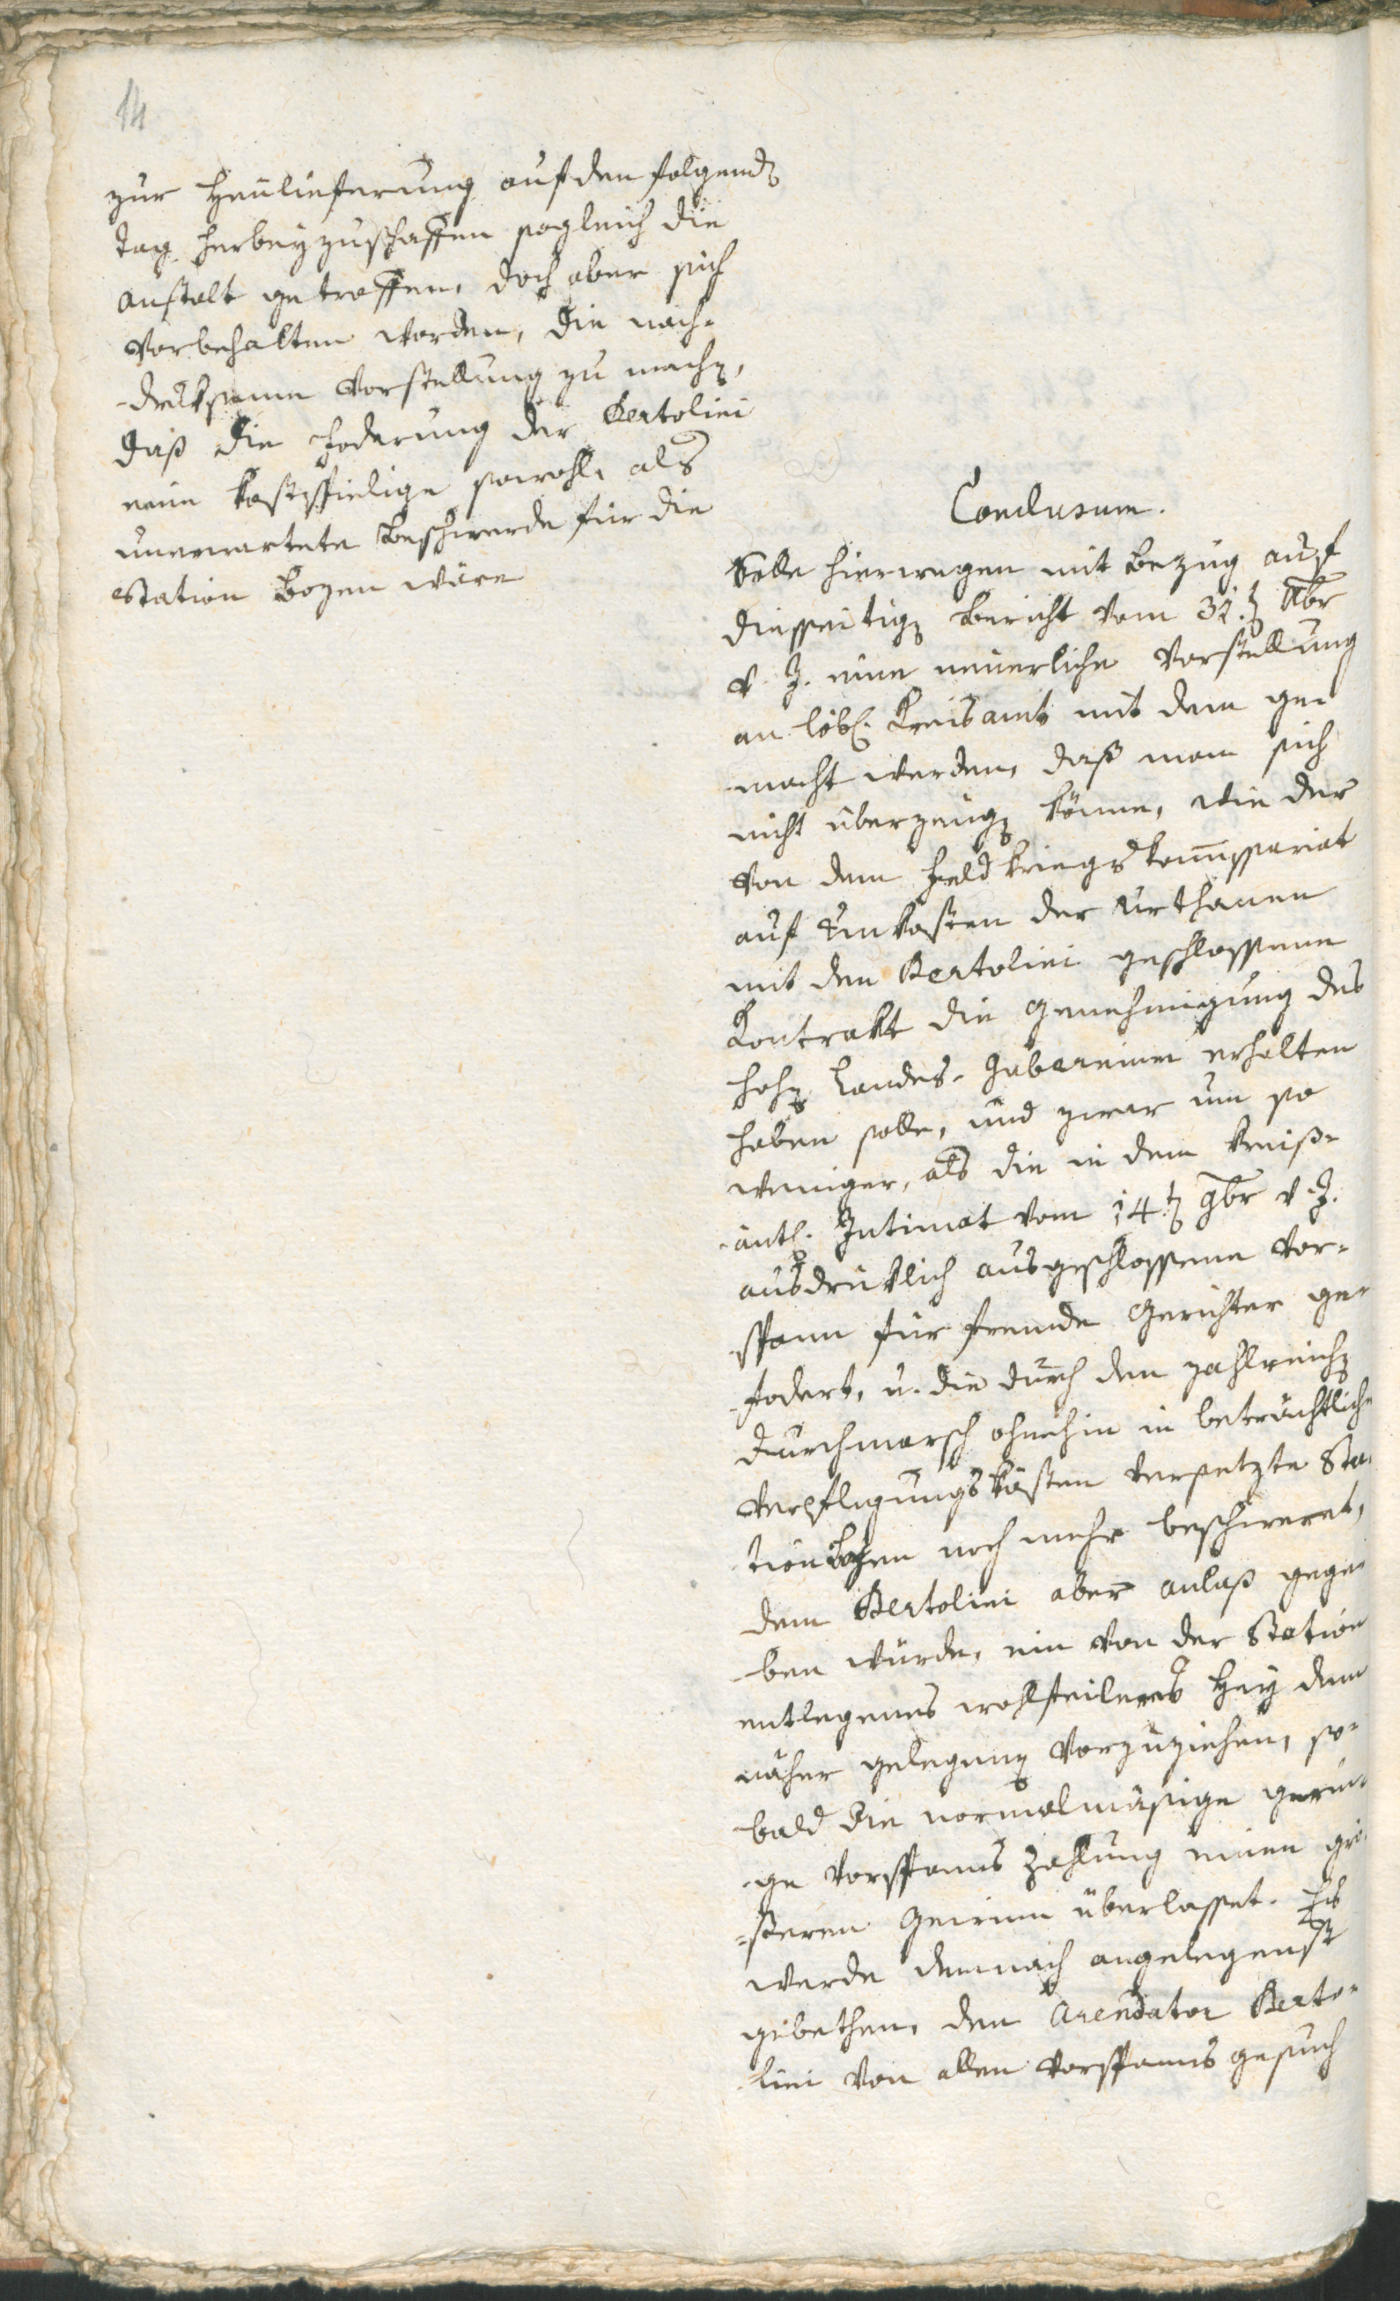 14
zur Heulieferung auf den folgend
Tag herbeyzuschaffen sogleich die
Anstalt getroffen, doch aber sich
vorbehalten worden, die nach-
-druksame Vorstellung zu mach,
daß die Foderung der Bertolini
eine kostspielige sowohl, als
unerwartete Beschwerde für die
Station Bozen wäre
Conclusum.
Solle hierwegen mit Bezug auf
diesseitig Bericht vom 31.t Xbr
v. J. eine neuerliche Vorstellung
an löbl. Kreisamt mit dem ge-
-macht werden, daß man sich
nicht überzeug könne, wie der
von dem Feldkriegskommissariat
auf Unkosten der Urthanen
mit den Bertolini geschlossene
Kontrakt die Genehmigung des
hoh Landes-Guberniums erhalten
haben solle, und zwar um so
weniger, als die in dem Kreis-
-amtl. Intimat vom 14.t 9br v. J.
ausdrüklich ausgeschlossene Vor-
spann für fremde Gerichter ge-
-fodert, u. die durch den zahlreich
Durchmarsch ohnehin in beträchtliche
Verpflegungskösten versetzte Sta-
tion Bozen noch mehr beschweret,
dem Bertolini aber Anlaß gege-
-ben würde, ein von der Station
entlegenes wohlfeileres Hey dem
näher gelegenen vorzuziehen, so-
bald die normalmäsige gerin-
-ge Vorspanns Zahlung einen grö-
-ßeren Gewinn überlasset. Es
werde demnach angelegenst
gebethen, den Arendator Berto-
lini von allen Vorspanns gesuch